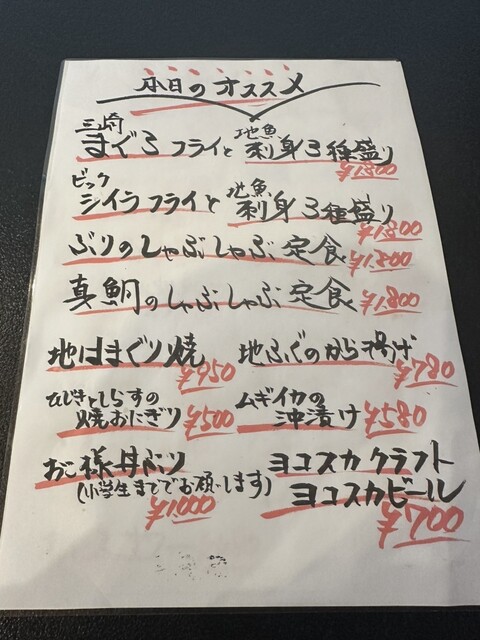 本日のオススメ
三崎まぐろフライと地魚刺身3種盛り
¥1,800
ビックシイラフライと地魚刺身3種盛り
¥1,800
ぶりのしゃぶしゃぶ定食 ¥1,800
真鯛のしゃぶしゃぶ定食 ¥1,800
地はまぐり焼 ¥950
地ふぐのから揚げ ¥780
ひじきとしらすの
焼おにぎり ¥500
ムギイカの
沖漬け ¥580
お子様丼ぶり
(小学生まででお願いします)
¥1000
ヨコスカクラフト
ヨコスカビール
¥700